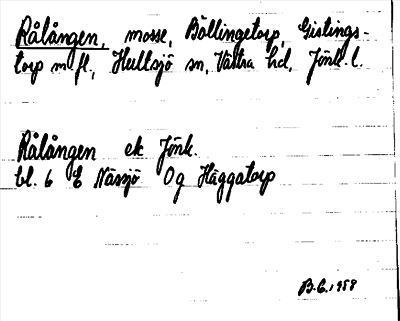 Rålången, mosse, Böllingetorp, Gistings-
torp m fl, Hultsjö sn, Västra hd, Jönk. l.
Rålången ek Jönk.
bl. 6 E Nässjö Og Häggatorp
B.C. 1958